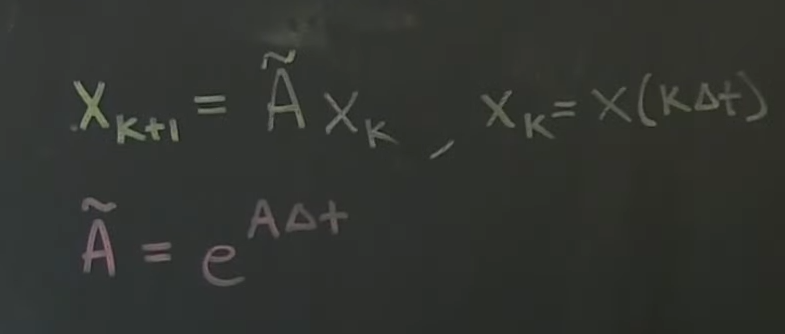 X_{K+1} = Ã X_K , X_K = X(KΔt)
Ã = e^{AΔt}